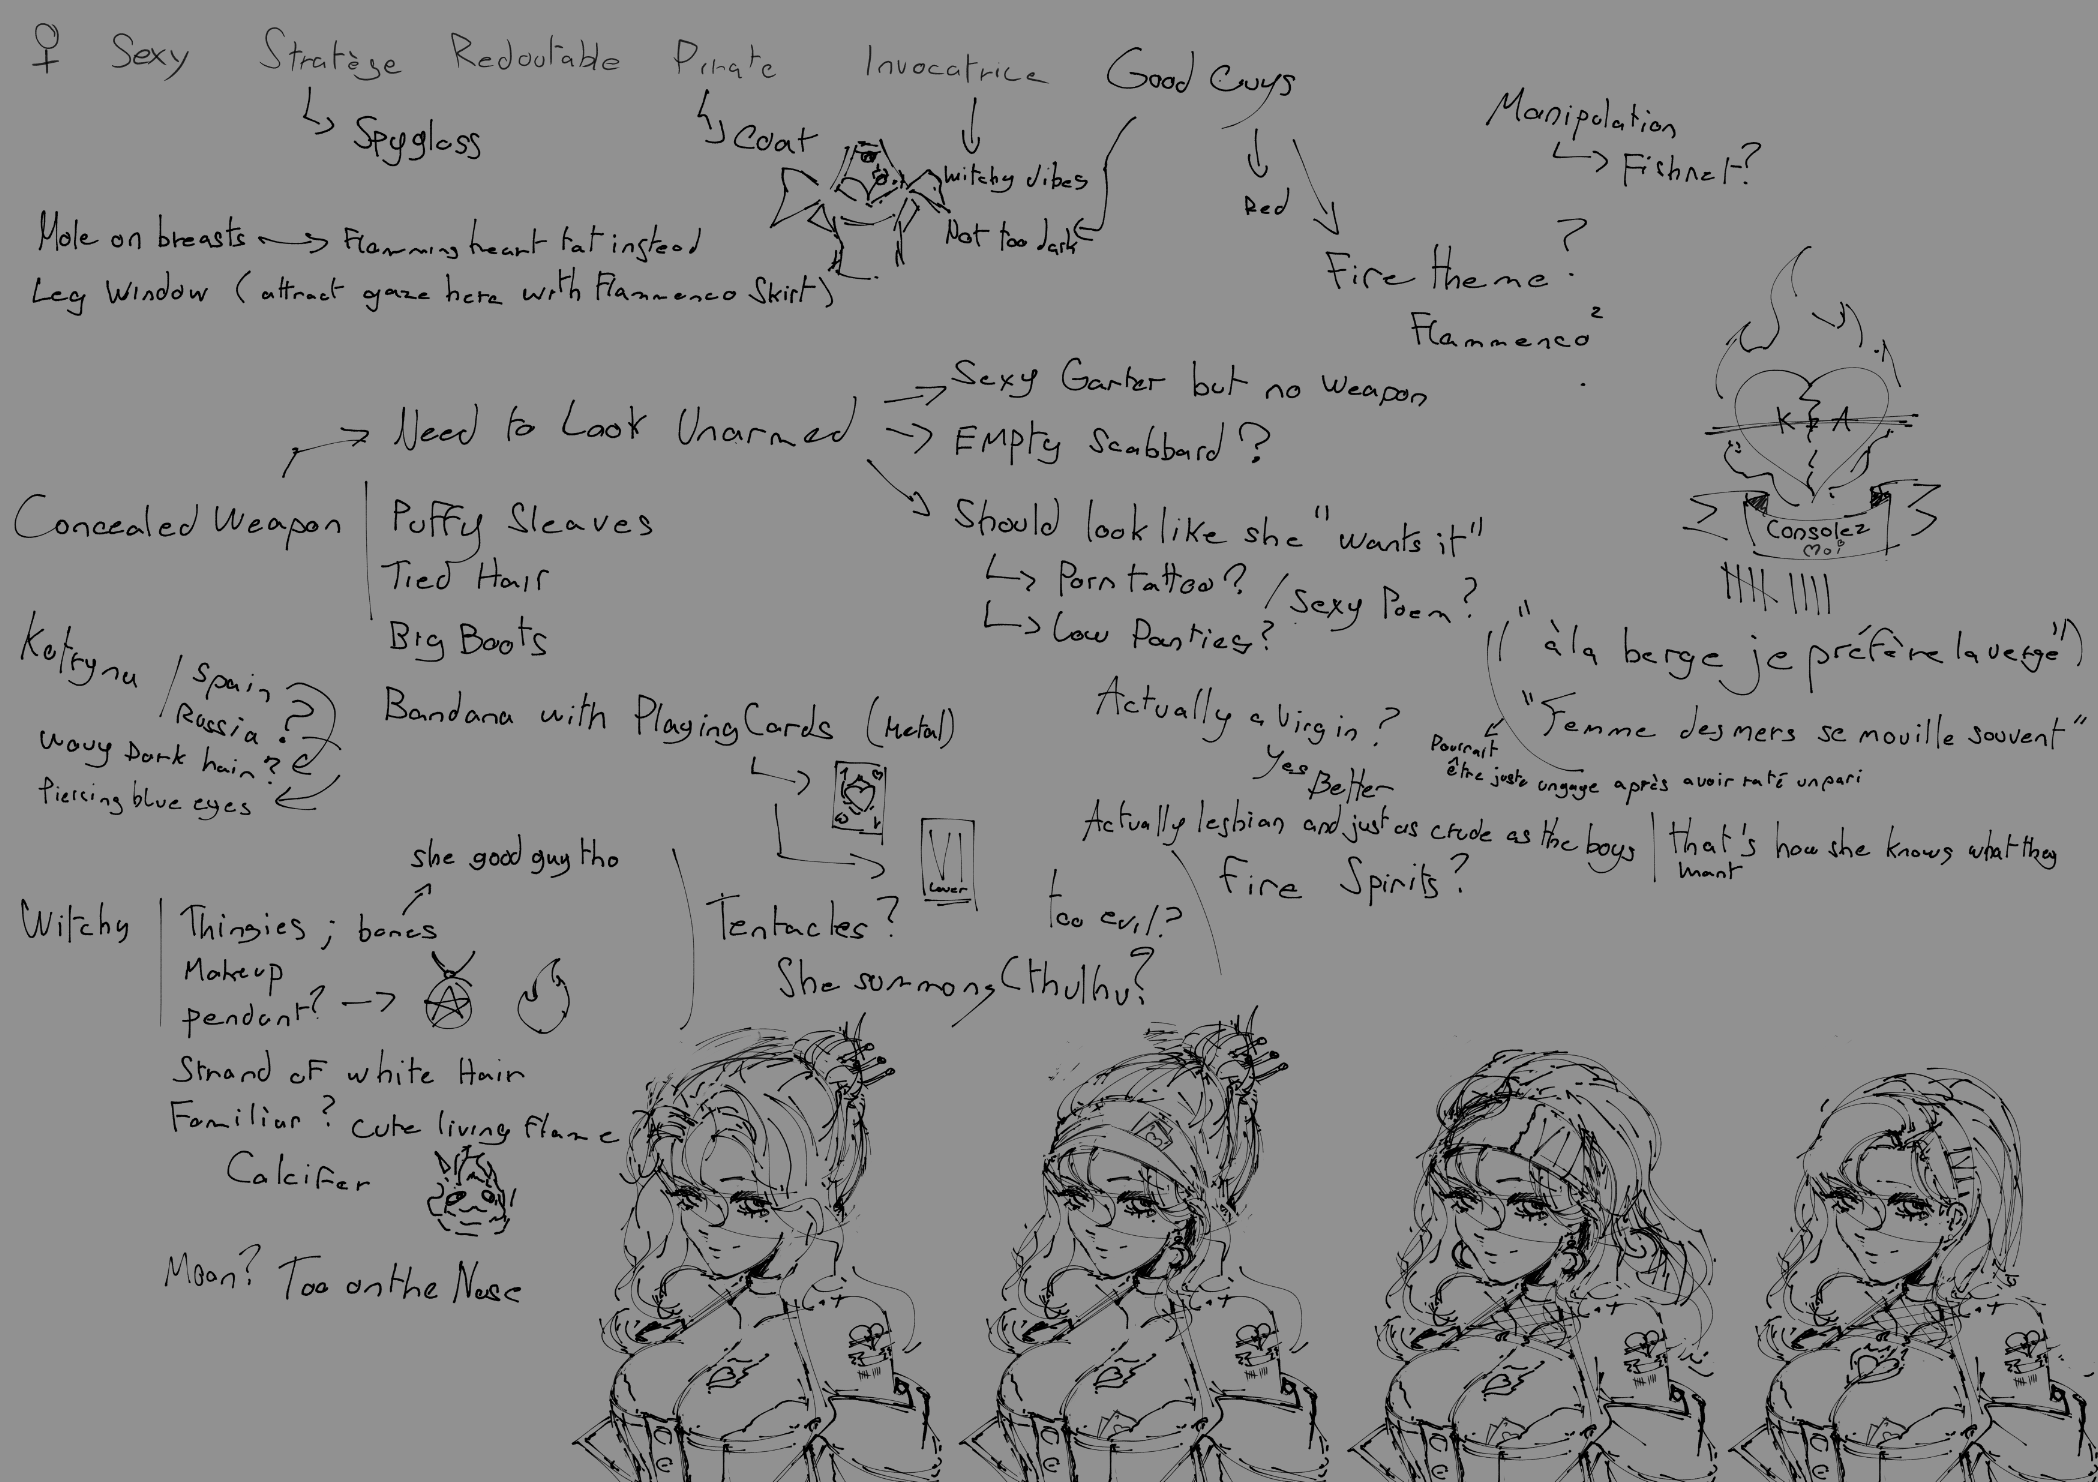 ♀ Sexy Stratège Redoutable Pirate Invocatrice Good Guys
↳ Spyglass
↳ Coat
Witchy vibes
Not too dark
Red
Manipolation
↳ Fishnet?
Mole on breasts → Flamming heart tat instead
Leg Window (attract gaze here with Flammenco Skirt)
Fire theme?
Flammenco²
K + A
Consolez
Moi
Concealed Weapon
→ Need to Look Unarmed
→ Sexy Garter but no weapon
→ Empty Scabbard?
Should look like she "wants it"
↳ Porn tattoo? / Sexy Poem?
↳ Low Panties?
Puffy Sleaves
Tied Hair
Big Boots
Bandana with Playing Cards (Metal)
VI
Lover
("à la berge je préfère la verge")
"Femme des mers se mouille souvent"
Pourrait être juste un gage après avoir raté un pari
Katryna / Spain
Russia?
Wavy Dark hair?
Piercing blue eyes
Actually a Virgin?
Yes
Better
Actually lesbian and just as crude as the boys | that's how she knows what they want
Fire Spirits?
she good guy tho
Witchy | Thingies ; bones
Makeup
pendant? →
Strand of white Hair
Familiar? cute living flame
Calcifer
Moon? Too on the Nose
Tentacles?
too evil?
She summons Cthulhu?